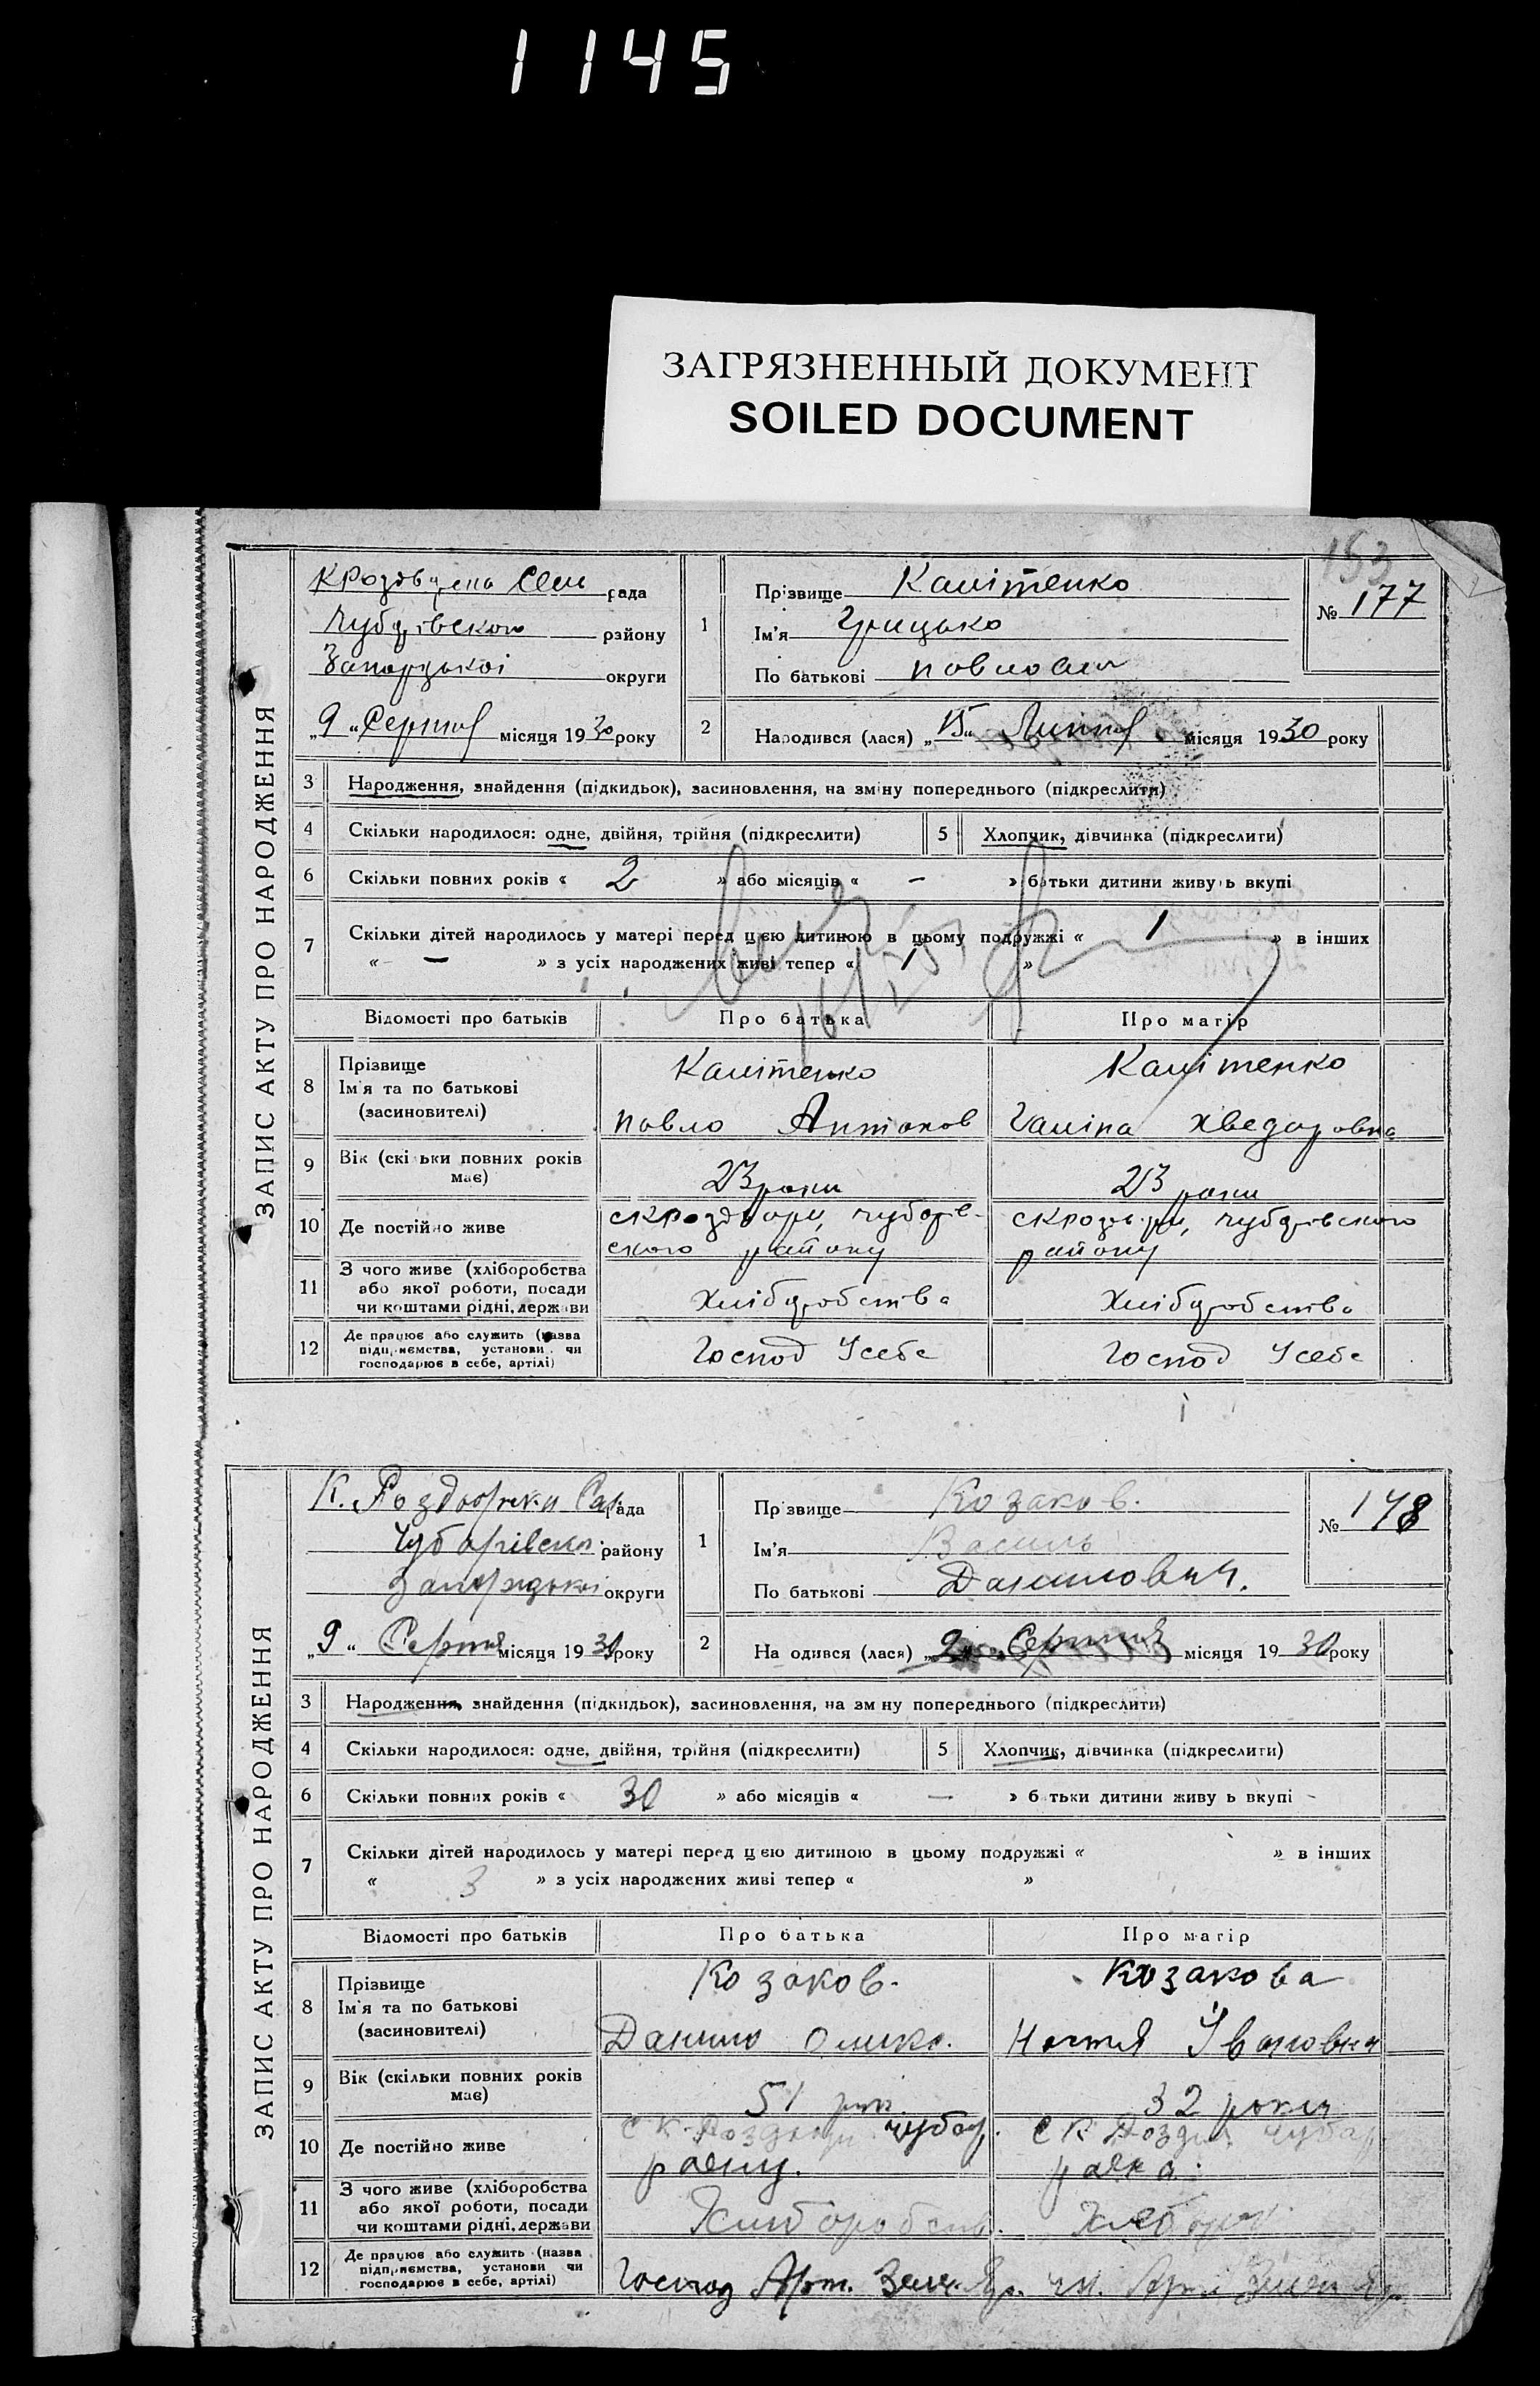 1145
ЗАГРЯЗНЕННЫЙ ДОКУМЕНТ
SOILED DOCUMENT
153
ЗАПИС АКТУ ПРО НАРОДЖЕННЯ
Сель рада
району
округи
„9“ Серпня місяця 1930 року
1
Прізвище Калітенко
Ім'я Грицько
По батькові Павлович
№ 177
2
Народився (лася) „15“ Липня місяця 1930 року
3 Народження, знайдення (підкидьок), засиновлення, на зміну попереднього (підкреслити)
4 Скільки народилося: одне, двійня, трійня (підкреслити)
5 Хлопчик, дівчинка (підкреслити)
6 Скільки повних років « 2 » або місяців « – » батьки дитини живуть вкупі
7 Скільки дітей народилось у матері перед цією дитиною в цьому подружжі « 1 » в інших
« – » з усіх народжених живі тепер « 1 »
Відомості про батьків Про батька Про матір
8 Прізвище
Ім'я та по батькові
(засиновителі)
Калітенко
Павло Антонов
Калітенко
Галіна Хведоровна
9 Вік (скільки повних років
має)
23 роки
23 роки
10 Де постійно живе
ского району
району
11 З чого живе (хліборобства
або якої роботи, посади
чи коштами рідні, держави
Хліборобства
Хліборобства
12 Де працює або служить (назва
підприємства, установи чи
господарює в себе, артілі)
Господ Усебе
Господ Усебе
ЗАПИС АКТУ ПРО НАРОДЖЕННЯ
К. рада
району
округи
„9“ Серпня місяця 1930 року
1
Прізвище Козаков.
Ім'я Василь
По батькові Данилович.
№ 178
2
Народився (лася) „2“ Серпня місяця 1930 року
3 Народження, знайдення (підкидьок), засиновлення, на зміну попереднього (підкреслити)
4 Скільки народилося: одне, двійня, трійня (підкреслити)
5 Хлопчик, дівчинка (підкреслити)
6 Скільки повних років « 30 » або місяців « – » батьки дитини живуть вкупі
7 Скільки дітей народилось у матері перед цією дитиною в цьому подружжі « » в інших
« 3 » з усіх народжених живі тепер « »
Відомості про батьків Про батька Про матір
8 Прізвище
Ім'я та по батькові
(засиновителі)
Козаков.
Данило
Козакова
Настя Івановна
9 Вік (скільки повних років
має)
51
32 роки
10 Де постійно живе
с К. Чубар.
раену.
с К
11 З чого живе (хліборобства
або якої роботи, посади
чи коштами рідні, держави
12 Де працює або служить (назва
підприємства, установи чи
господарює в себе, артілі)
Господ Арт.